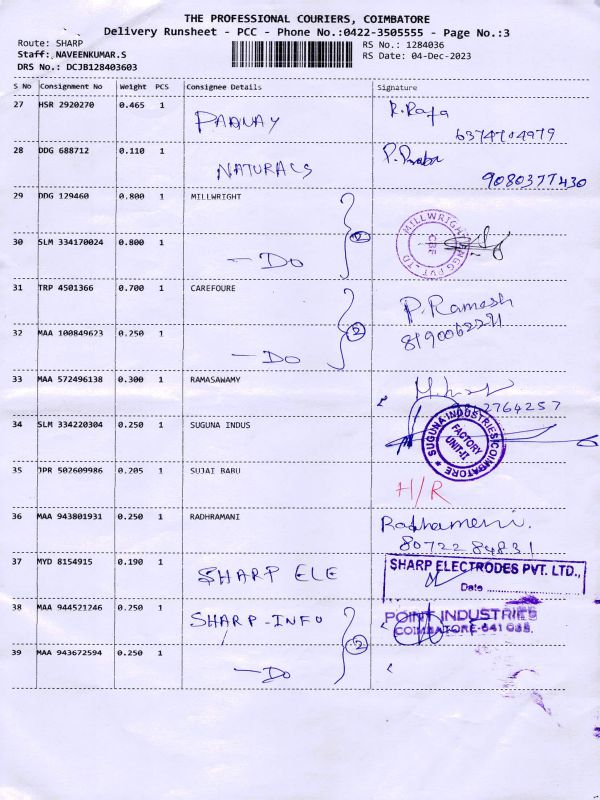 THE PROFESSIONAL COURIERS, COIMBATORE
Delivery Runsheet - PCC - Phone No.:0422-3505555 - Page No.:3
Route: SHARP
RS No.: 1284036
Staff: NAVEENKUMAR.S
RS Date: 04-Dec-2023
DRS No.: DCJB128403603
S No Consignment No Weight PCS Consignee Details Signature
27 HSR 2920270 0.465 1 R.Raja
6374704979
28 DDG 688712 0.110 1 NATURALS P.Praba
9080377430
29 DDG 129460 0.800 1 MILLWRIGHT
30 SLM 334170024 0.800 1 - Do 2 MILLWRIGHT ENGG PVT-LTD CBE
31 TRP 4501366 0.700 1 CAREFOURE P. Ramesh
8190062291
32 MAA 100849623 0.250 1 - Do 2
33 MAA 572496138 0.300 1 RAMASAWAMY
2764257
34 SLM 334220304 0.250 1 SUGUNA INDUS SUGUNA INDUSTRIES COIMBATORE FACTORY UNIT-II
35 JPR 502609986 0.205 1 SUJAI BABU H/R
36 MAA 943801931 0.250 1 RADHRAMANI Radhameni.
8072284831
37 MYD 8154915 0.190 1 SHARP ELE SHARP ELECTRODES PVT. LTD.,
Date
38 MAA 944521246 0.250 1 SHARP-INFO POINT INDUSTRIES
COIMBATORE-641 035.
39 MAA 943672594 0.250 1 - Do 2